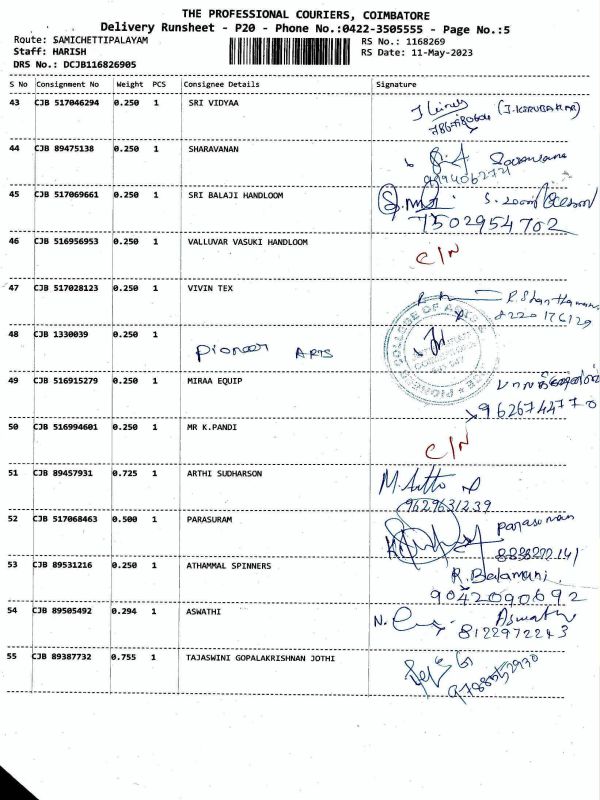 THE PROFESSIONAL COURIERS, COIMBATORE
Delivery Runsheet - P20 - Phone No.:0422-3505555 - Page No.:5
Route: SAMICHETTIPALAYAM
RS No.: 1168269
Staff: HARISH
RS Date: 11-May-2023
DRS No.: DCJB116826905
S No Consignment No Weight PCS Consignee Details Signature
43 CJB 517046294 0.250 1 SRI VIDYAA (J.KIRUBAKAR)
44 CJB 89475138 0.250 1 SHARAVANAN
45 CJB 517069661 0.250 1 SRI BALAJI HANDLOOM
7502954702
46 CJB 516956953 0.250 1 VALLUVAR VASUKI HANDLOOM C/N
47 CJB 517028123 0.250 1 VIVIN TEX
8220176129
48 CJB 1330039 0.250 1 Pioneer ARTS
49 CJB 516915279 0.250 1 MIRAA EQUIP
9626744770
50 CJB 516994601 0.250 1 MR K.PANDI C/N
51 CJB 89457931 0.725 1 ARTHI SUDHARSON
9629631239
52 CJB 517068463 0.500 1 PARASURAM Parasuram
53 CJB 89531216 0.250 1 ATHAMMAL SPINNERS R.Balamani
9042090692
54 CJB 89505492 0.294 1 ASWATHI
8122972243
55 CJB 89387732 0.755 1 TAJASWINI GOPALAKRISHNAN JOTHI